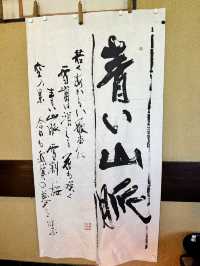 青い山脈
若くあかるい歌声に
雪崩は消える花も咲く
青い山脈 雪割桜
空の果 今日も我等の夢を呼ぶ